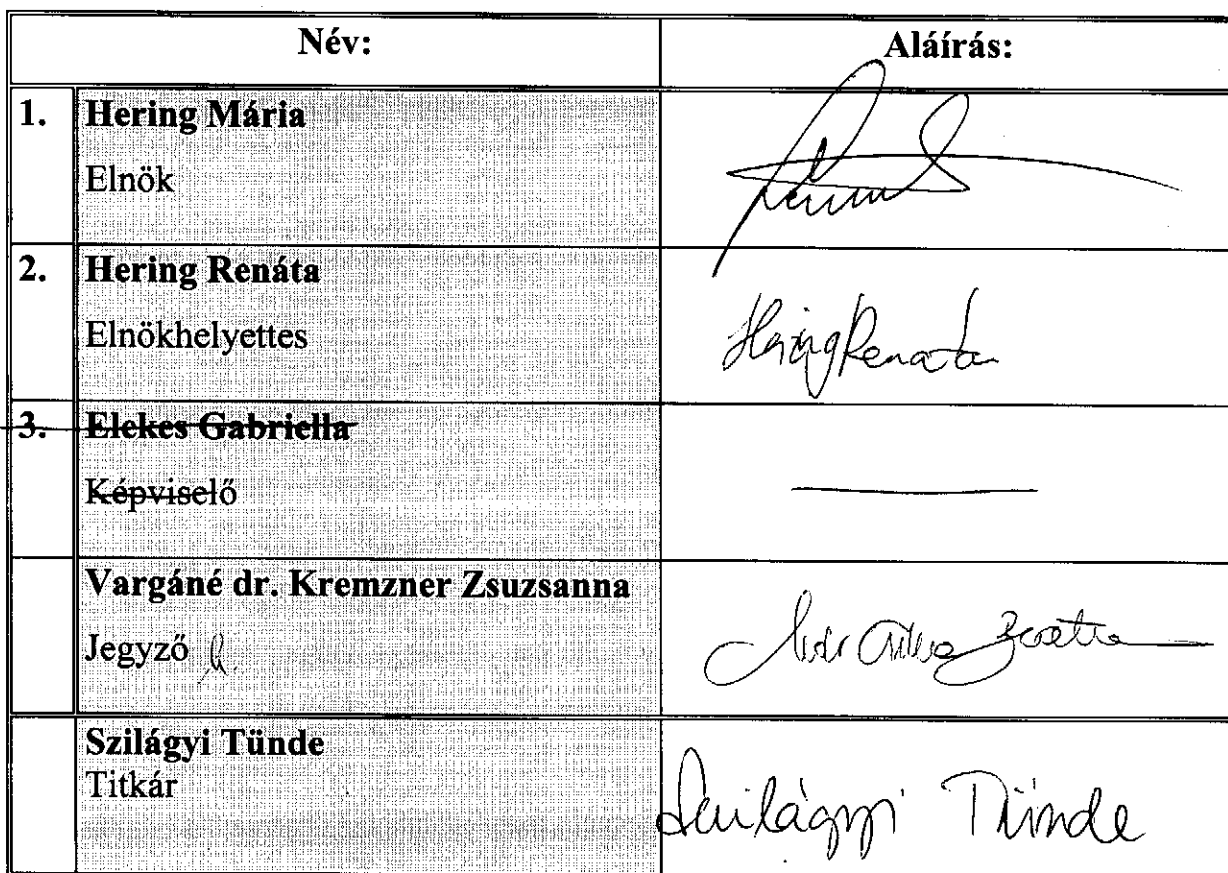 Név: Aláírás:
1. Hering Mária
Elnök
2. Hering Renáta
Elnökhelyettes
Hering Renata
3. Elekes Gabriella
Képviselő
Vargáné dr. Kremzner Zsuzsanna
Jegyző
Szilágyi Tünde
Titkár
Szilágyi Tünde